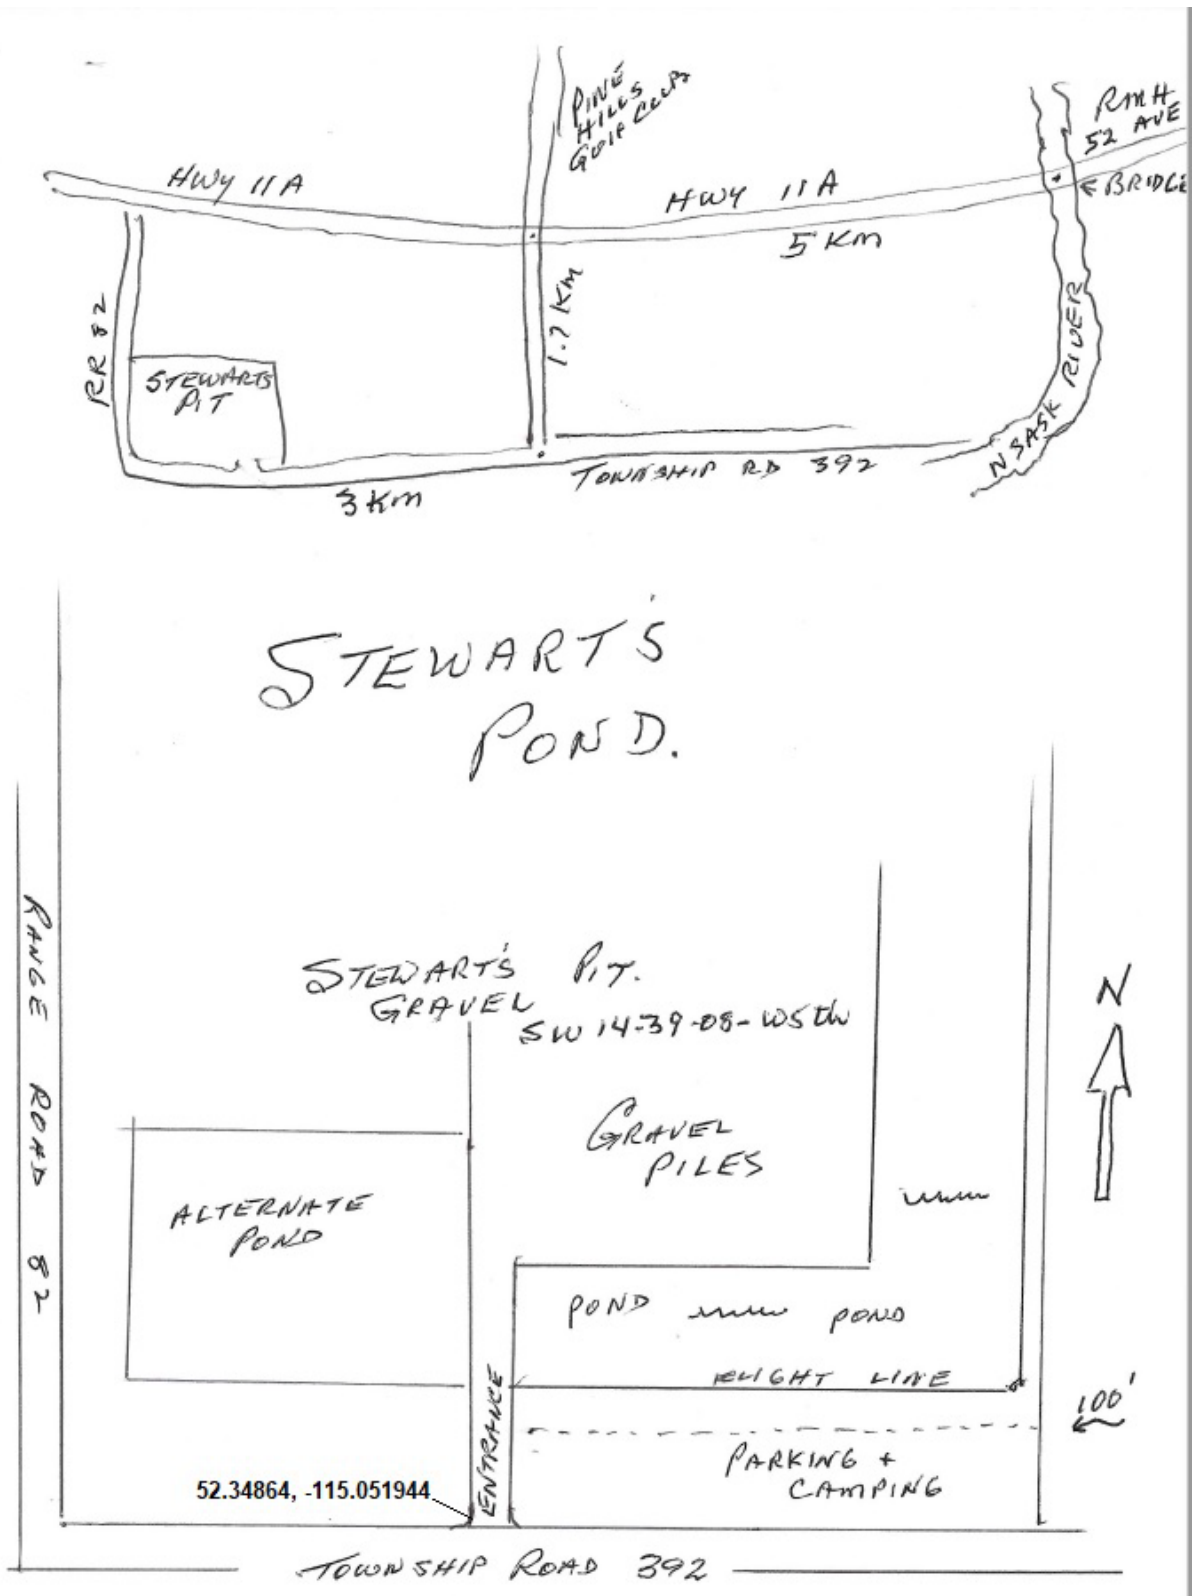 PINE
HILLS
GOLF CLUB
RMH
52 AVE
HWY 11A
HWY 11A
BRIDGE
5 KM
RR 82
1.7 KM
STEWARTS
PIT
N SASK RIVER
TOWNSHIP RD 392
3 KM
STEWART'S
POND.
RANGE ROAD 82
STEWART'S PIT.
GRAVEL
SW 14-39-08-W5th
N
GRAVEL
PILES
ALTERNATE
POND
POND POND
FLIGHT LINE
100'
ENTRANCE
PARKING +
CAMPING
52.34864, -115.051944
TOWNSHIP ROAD 392